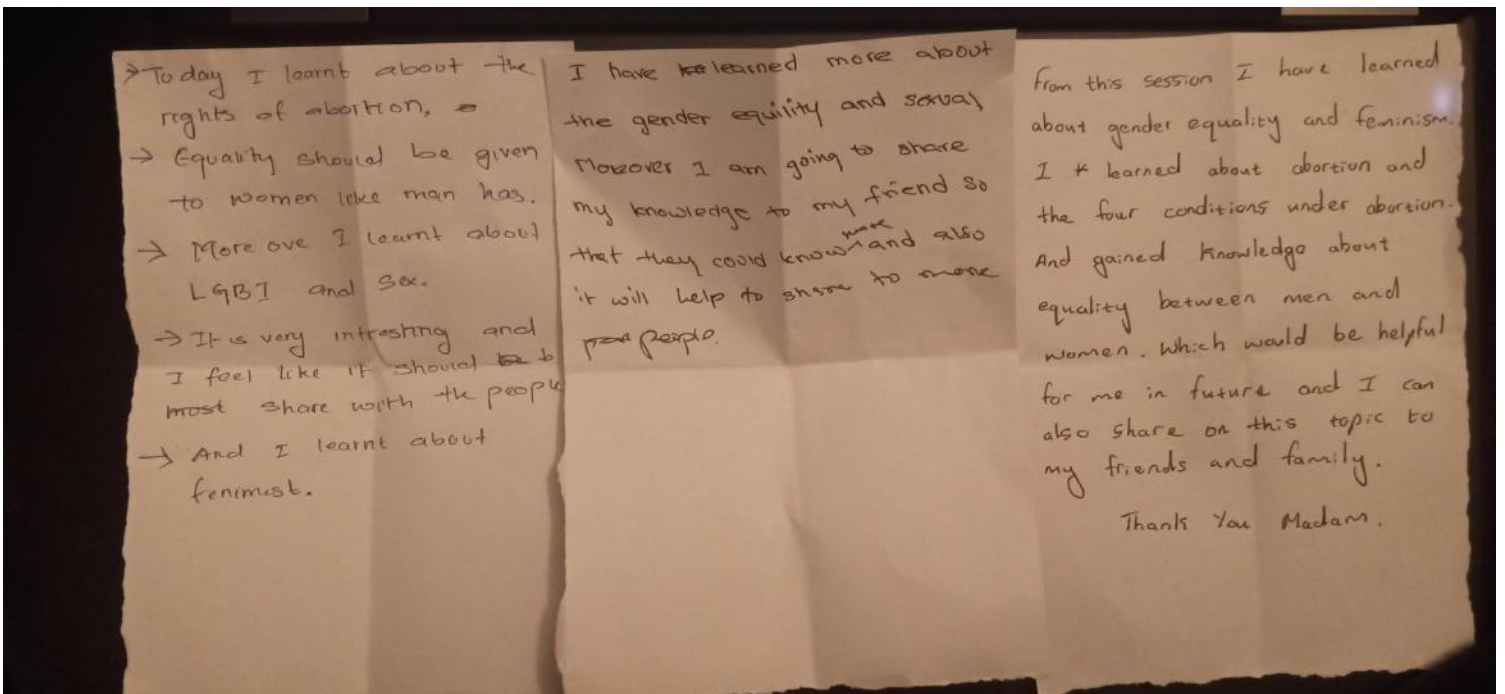 → Today I learnt about the
rights of abortion,
→ Equality should be given
to women like man has.
→ More ove I learnt about
LGBI and Sex.
→ It is very intresting and
I feel like it should b
most share with the people
→ And I learnt about
fenimist.
I have learned more about
the gender equility and sexual,
Moreover I am going to share
my knowledge to my friend so
that they could know more and also
it will help to share to more
people.
From this session I have learned
about gender equality and feminism.
I learned about abortion and
the four conditions under abortion.
And gained knowledge about
equality between men and
women. Which would be helpful
for me in future and I can
also share on this topic to
my friends and family.
Thank You Madam.